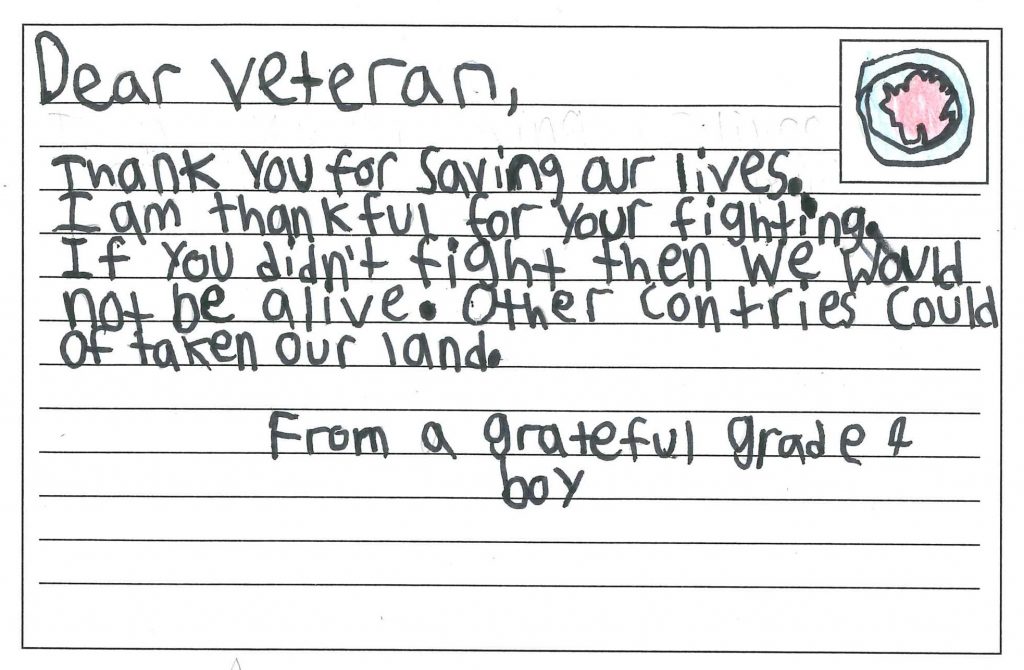 Dear veteran,
Thank you for saving our lives.
I am thankful for your fighting.
If you didn't fight then we would
not be alive. Other contries could
of taken our land.
From a grateful grade 4
boy